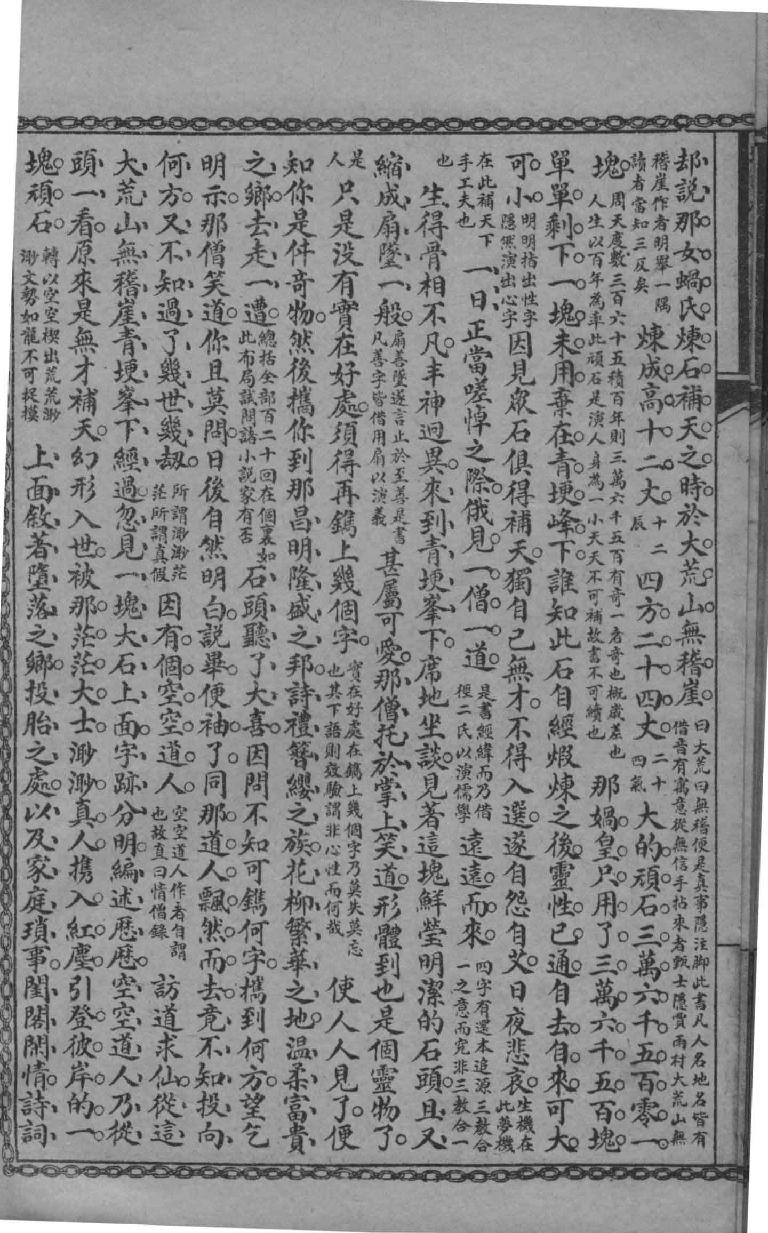 却說那女媧氏煉石補天之時於大荒山無稽崖曰大荒曰無稽便是真事隱注脚此書凡人名地名皆有借音有寓意從無信手拈來者甄士隱賈雨村大荒山無
稽崖作者明舉一隅讀者當知三反矣煉成高十二丈十二辰四方二十四丈二十四氣大的頑石三萬六千五百零一
塊周天度數三百六十五積百年則三萬六千五百有奇一者奇也概歲差也人生以百年為率此頑石是演人身為一小天天不可補故書不可續也那媧皇只用了三萬六千五百塊
單單剩下一塊未用棄在青埂峰下誰知此石自經煆煉之後靈性已通自去自來可大
可小明明指出性字隱然演出心字因見眾石俱得補天獨自己無才不得入選遂自怨自艾日夜悲哀生機在此夢機
在此補天下手工夫也一日正當嗟悼之際俄見一僧一道是書經緯而乃借徑二氏以演儒學遠遠而來四字有還本追源三教合一之意而究非三教合一
也生得骨相不凡丰神迥異來到青埂峯下席地坐談見著這塊鮮瑩明潔的石頭且又
縮成扇墜一般扇善墜遂言止於至善是書凡善字皆借用扇以演義甚屬可愛那僧托於掌上笑道形體到也是個靈物了
只是没有實在好處須得再鐫上幾個字實在好處在鐫上幾個字乃莫失莫忘也其下語則效驗謂非心性而何哉使人人見了便
是人知你是件奇物然後攜你到那昌明隆盛之邦詩禮簪纓之族花柳繁華之地温柔富貴
之鄉去走一遭總括全部百二十回在個裏如此布局試問諸小說家有否石頭聽了大喜因問不知可鐫何字攜到何方望乞
明示那僧笑道你且莫問日後自然明白說畢便袖了同那道人飄然而去竟不知投向
何方又不知過了幾世幾刼所謂渺渺茫茫所謂真假因有個空空道人空空道人作者自謂也故直曰情僧錄訪道求仙從這
大荒山無稽崖青埂峯下經過忽見一塊大石上面字跡分明編述歷歷空空道人乃從
頭一看原來是無才補天幻形入世被那茫茫大士渺渺真人攜入紅塵引登彼岸的一
塊頑石轉以空空楔出荒荒渺渺文勢如龍不可捉摸上面敘著墮落之鄉投胎之處以及家庭瑣事閨閣閑情詩詞